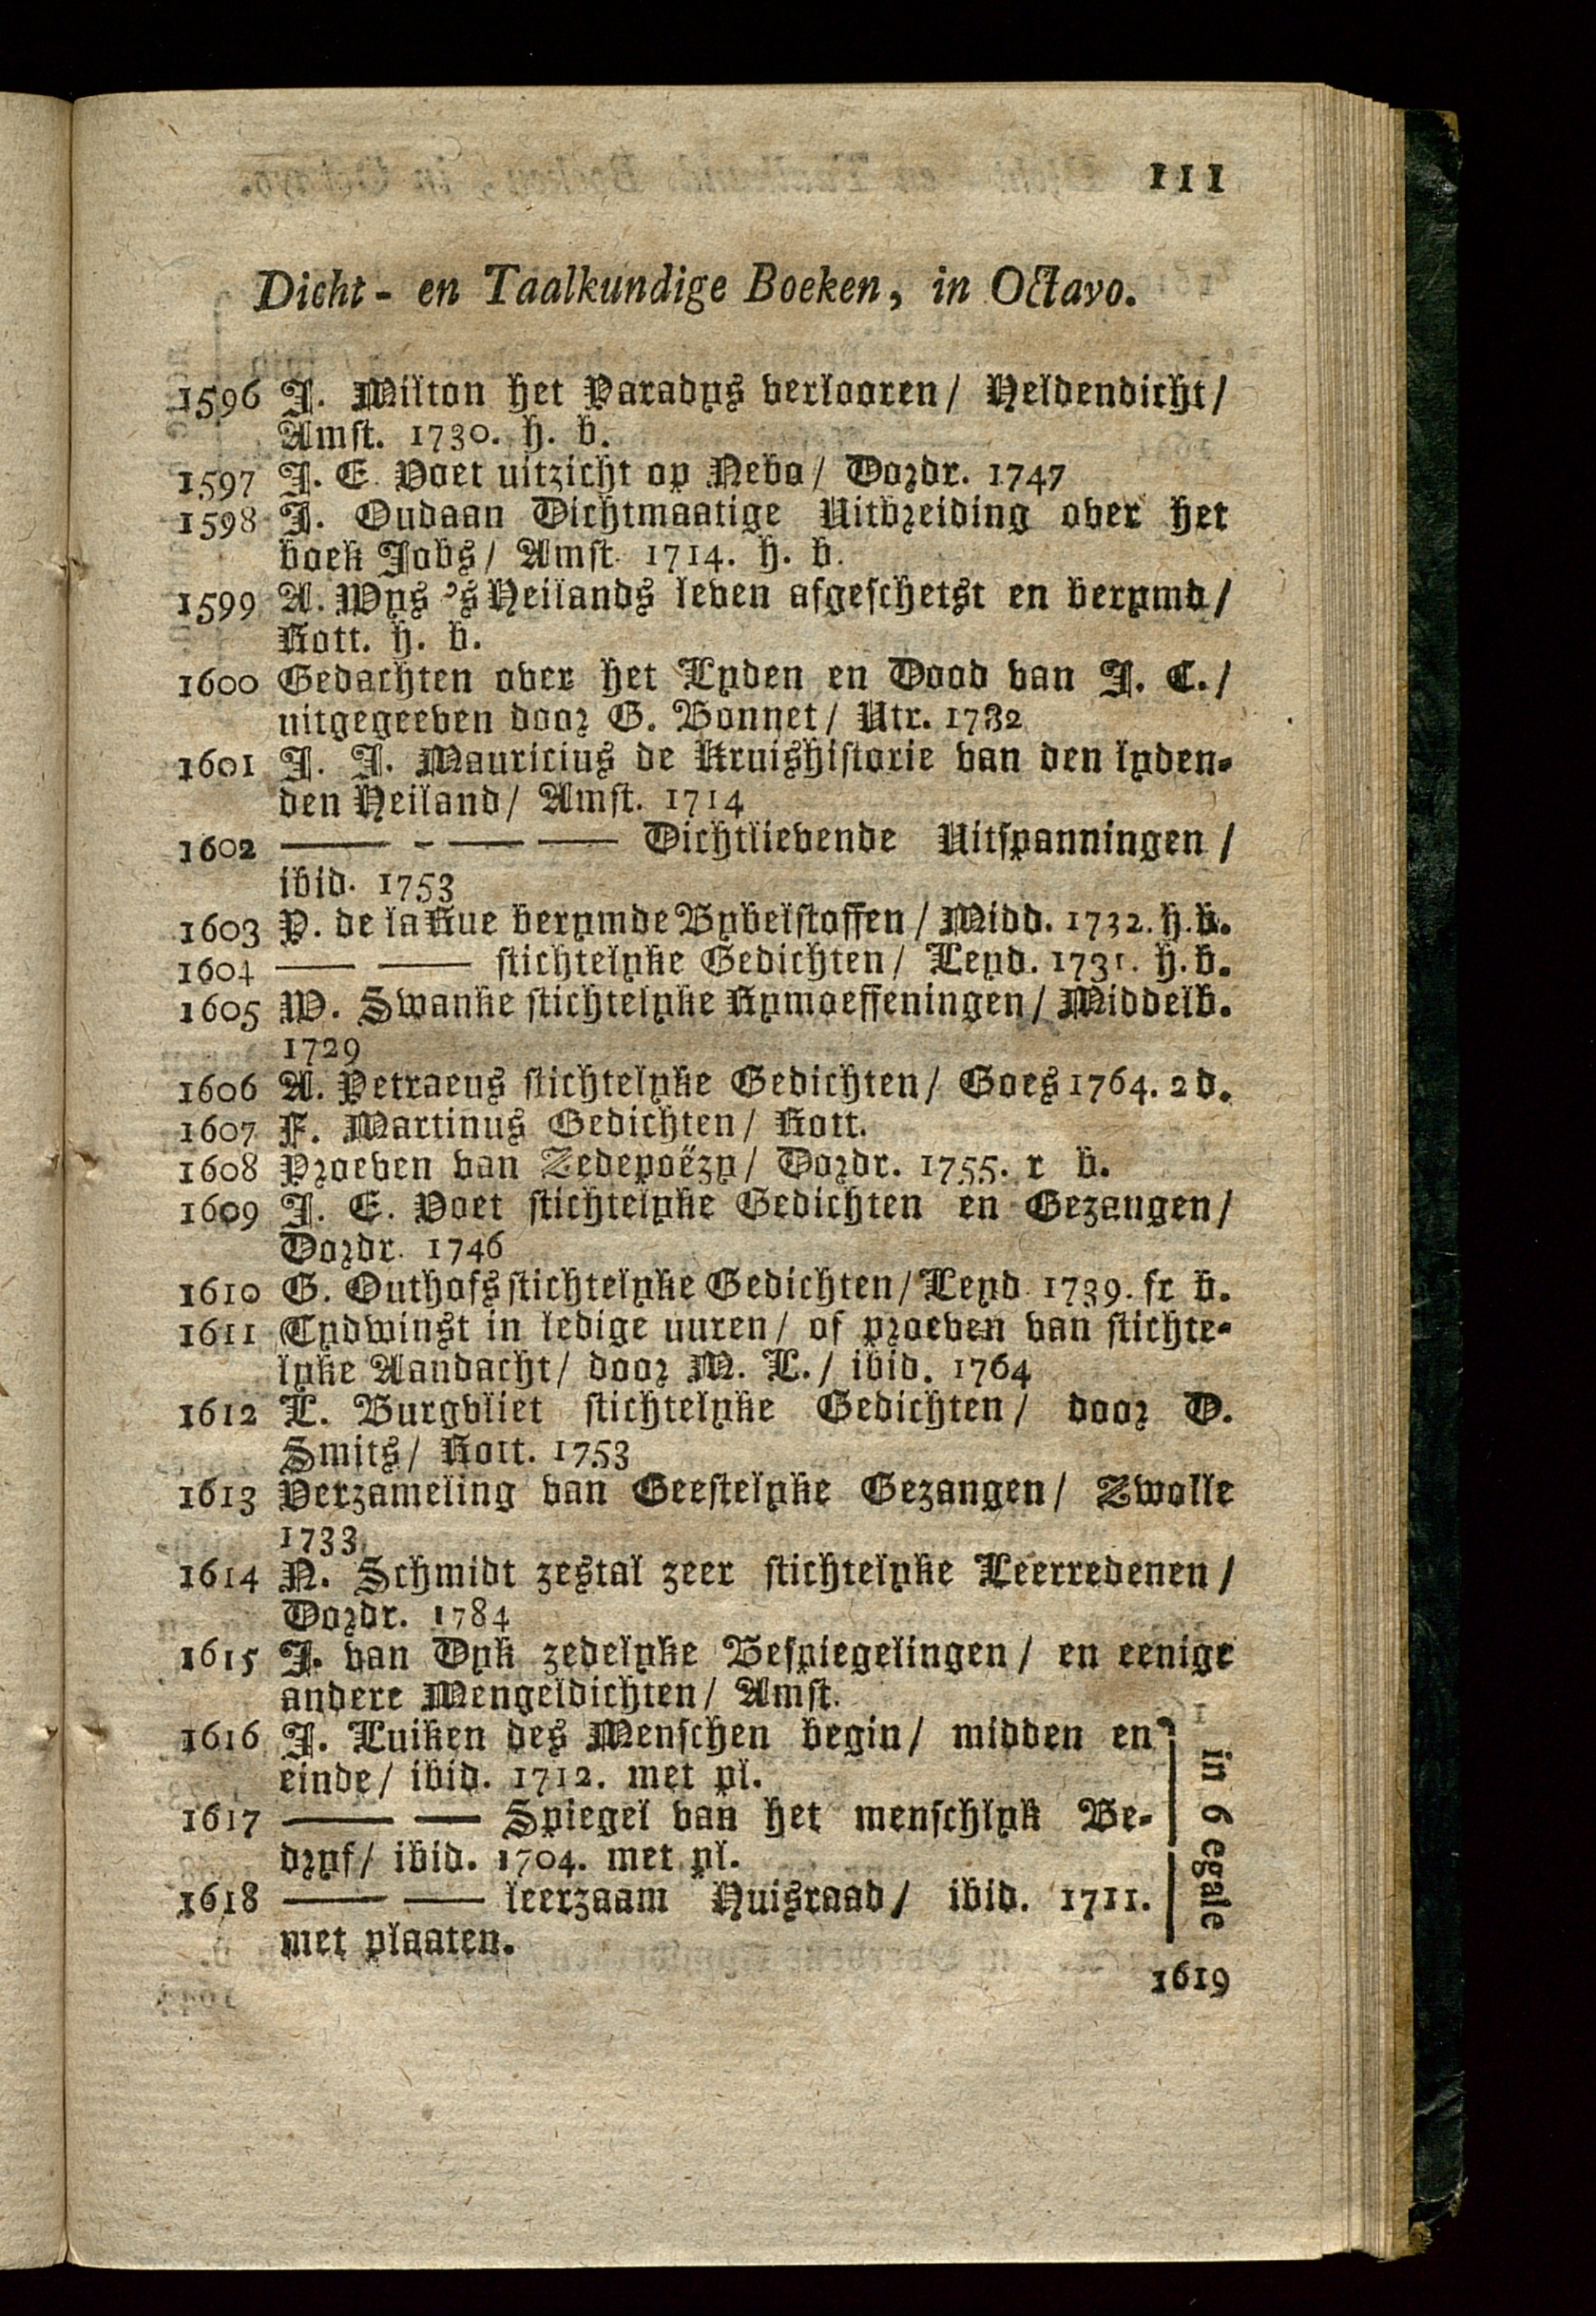 111
Dicht- en Taalkundige Boeken, in Octavo.
1596 J. Milton het Paradys verlooren/ Heldendicht/
Amst. 1730. h. b.
1597 J. E. Voet uitzicht op Nebo/ Dordr. 1747
1598 J. Oudaan Dichtmaatige Uitbreiding over het
boek Jobs/ Amst. 1714. h. b.
1599 A. Wys 's Heilands leven afgeschetst en berymd/
Rott. h. b.
1600 Gedachten over het Lyden en Dood van J. C./
uitgegeeven door G. Bonnet/ Utr. 1782
1601 J. J. Mauricius de Kruishistorie van den lyden-
den Heiland/ Amst. 1714
1602 —— - —— —— Dichtlievende Uitspanningen/
ibid. 1753
1603 P. de la Rue berymde Bybelstoffen/ Midd. 1732. h. b.
1604 —— —— stichtelyke Gedichten/ Leyd. 1731. h. b.
1605 W. Swanke stichtelyke Rymoeffeningen/ Middelb.
1729
1606 A. Petraeus stichtelyke Gedichten/ Goes 1764. 2 d.
1607 F. Martinus Gedichten/ Rott.
1608 Proeven van Zedepoëzy/ Dordr. 1755. r b.
1609 J. E. Voet stichtelyke Gedichten en Gezangen/
Dordr. 1746
1610 G. Outhofs stichtelyke Gedichten/ Leyd. 1739. fr b.
1611 Tydwinst in ledige uuren/ of proeven van stichte-
lyke Aandacht/ door M. L./ ibid. 1764
1612 L. Burgvliet stichtelyke Gedichten/ door D.
Smits/ Rott. 1753
1613 Verzameling van Geestelyke Gezangen/ Zwolle
1733
1614 N. Schmidt zestal zeer stichtelyke Leerredenen/
Dordr. 1784
1615 J. van Dyk zedelyke Bespiegelingen/ en eenige
andere Mengeldichten/ Amst.
1616 J. Luiken des Menschen begin/ midden en
einde/ ibid. 1712. met pl.
1617 —— —— Spiegel van het menschlyk Be-
dryf/ ibid. 1704. met pl.
1618 —— —— leerzaam Huisraad/ ibid. 1711.
met plaaten.
in 6 egale
1619